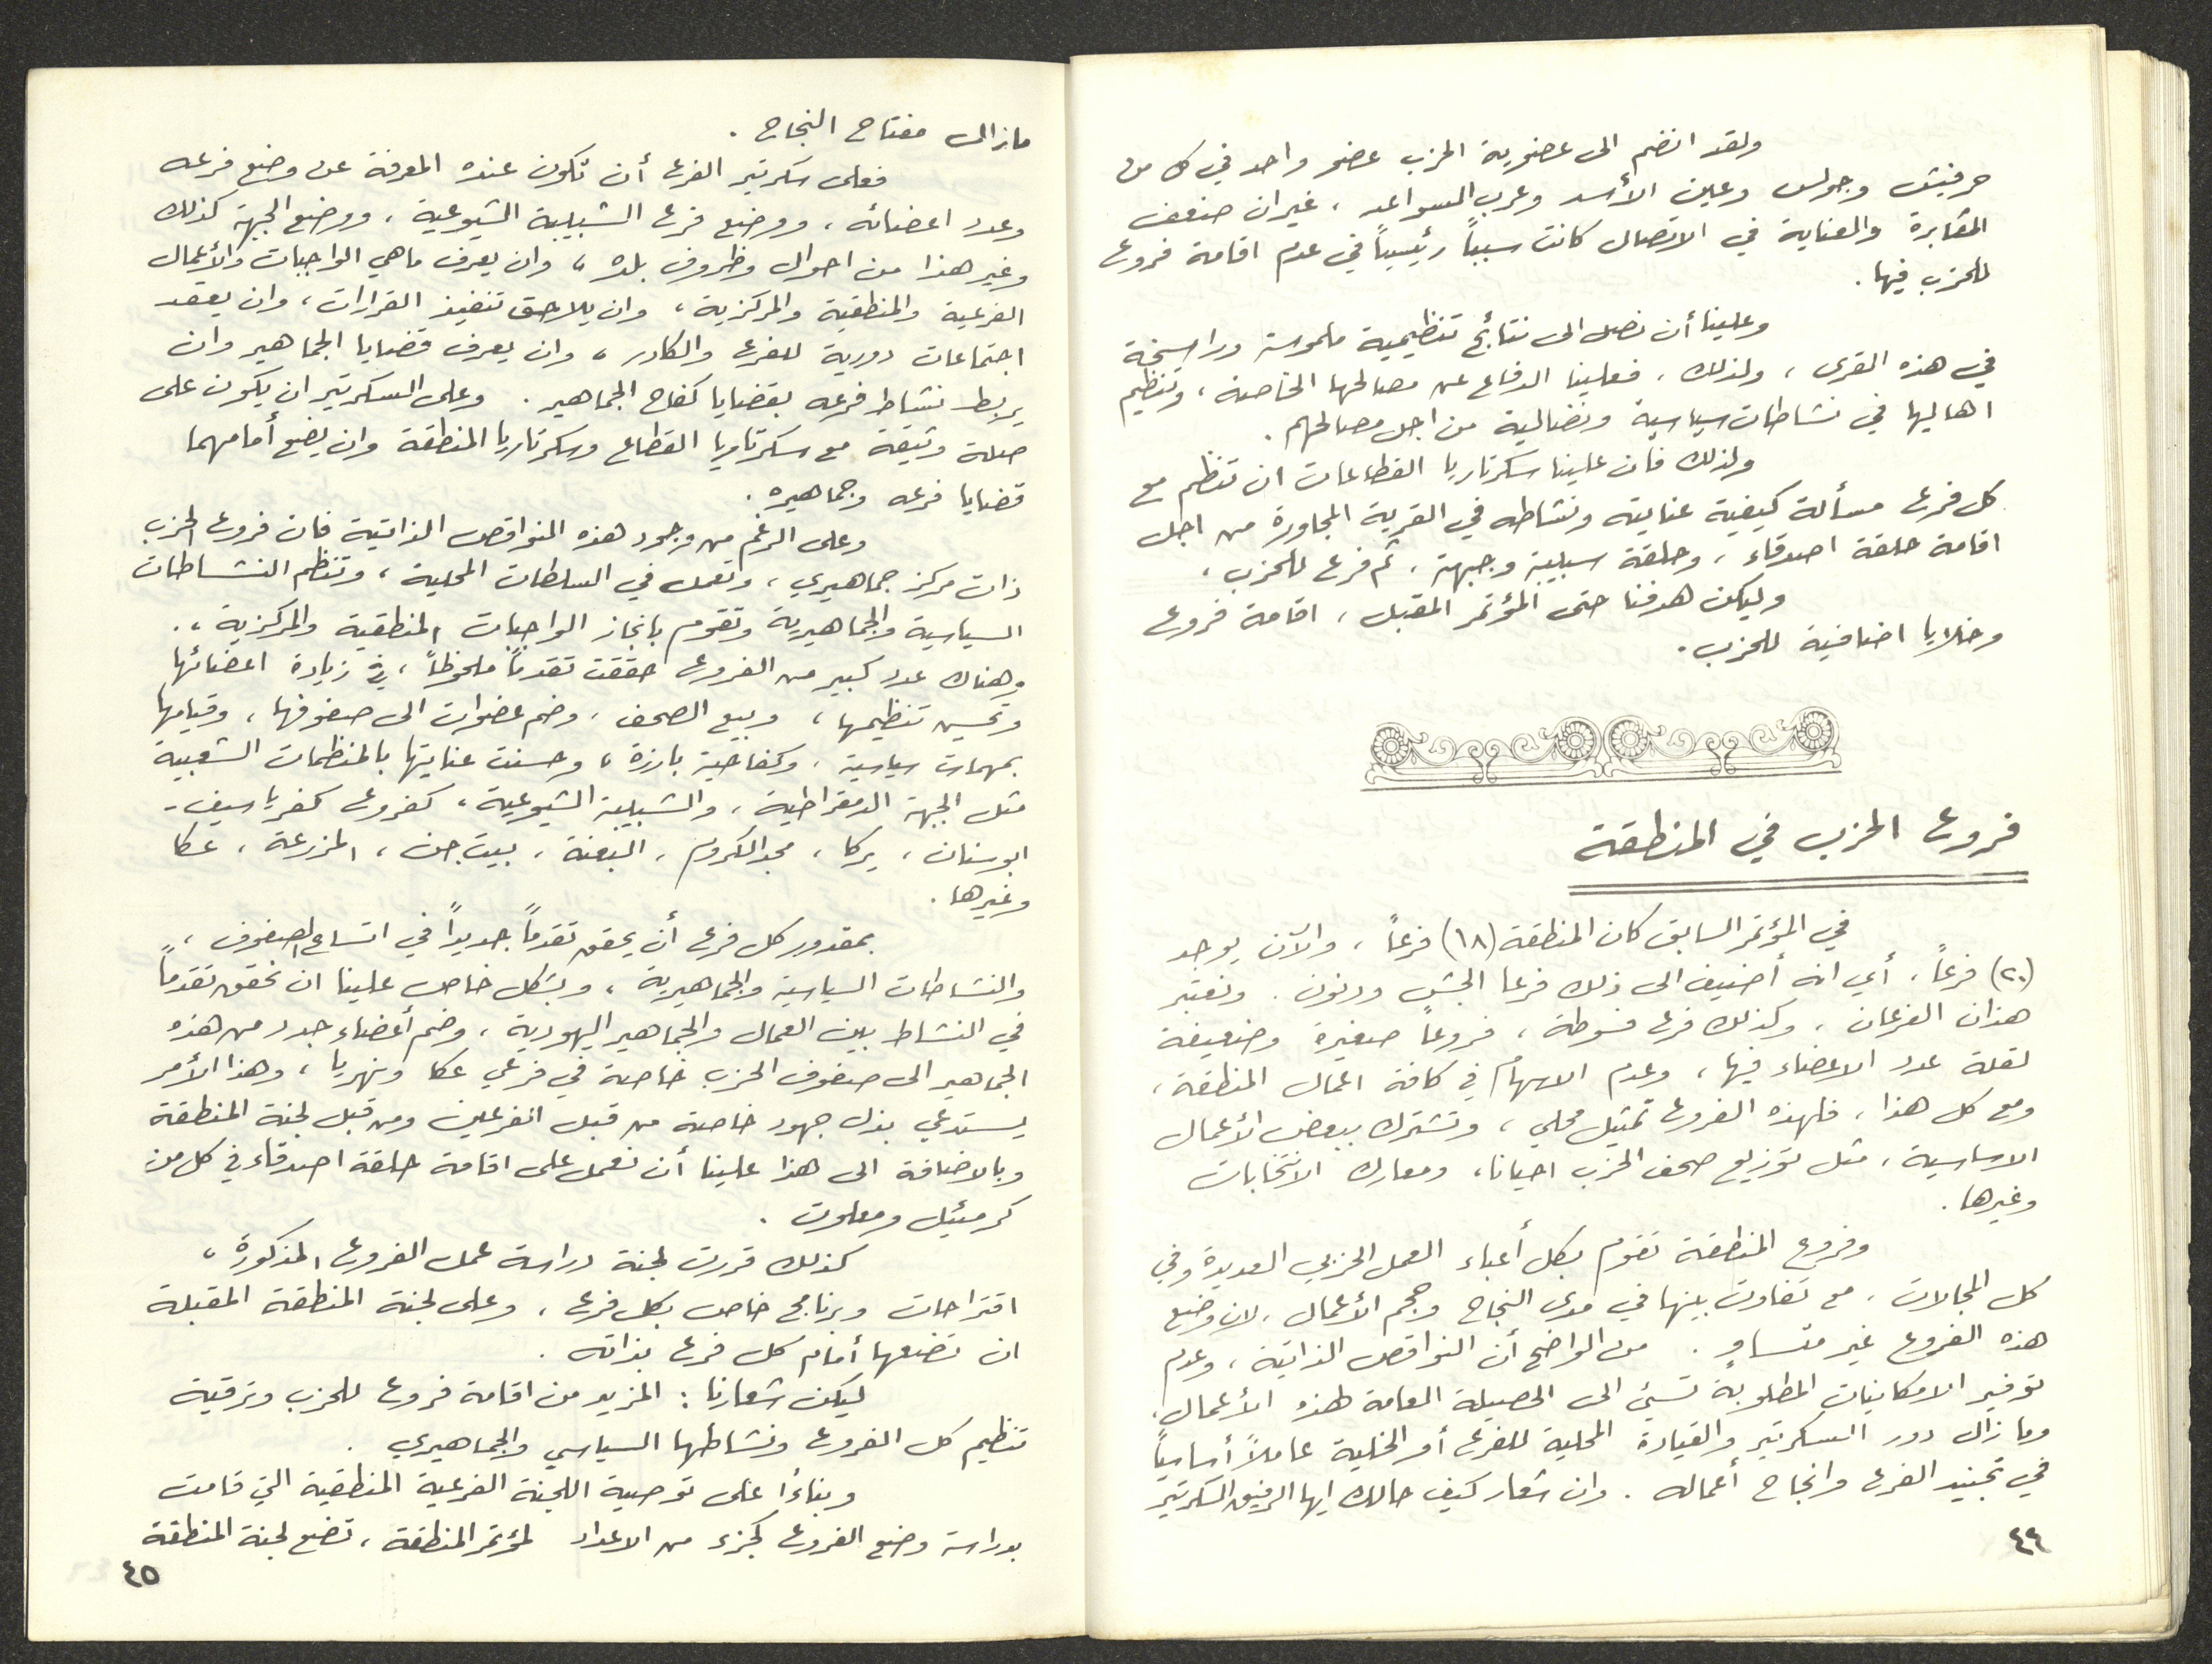 ولقد انضم الى عضوية الحزب عضو واحد في كل من
حرفيش وجولس وعين الأسد وعرب السواعد ، غير ان ضعف
المثابرة والعناية في الاتصال كانت سبباً رئيسياً في عدم اقامة فروع
للحزب فيها .
وعلينا أن نصل الى نتائج تنظيمية ملموسة وراسخة
في هذه القرى ، ولذلك ، فعلينا الدفاع عن مصالحها الخاصة ، وتنظيم
اهاليها في نشاطات سياسية ونضالية من اجل مصالحهم .
ولذلك فان علينا سكرتاريا القطاعات ان تنظم مع
كل فرع مسألة كيفية عنايته ونشاطه في القرية المجاورة من اجل
اقامة حلقة اصدقاء ، وحلقة سبيبة وجبهة ، ثم فرع للحزب ،
وليكن هدفنا حتى المؤتمر المقبل ، اقامة فروع
وخلايا اضافية للحزب .
فروع الحزب في المنطقة
في المؤتمر السابق كان المنطقة (١٨) فرعاً ، والآن يوجد
(٢٠) فرعاً ، أي انه أضيف الى ذلك فرعا الجش ودنون . ونعتبر
هذان الفرعان ، وكذلك فرع فسوطة ، فروعاً صغيرة وضعيفة
لقلة عدد الاعضاء فيها ، وعدم الاسهام في كافة اعمال المنطقة ،
ومع كل هذا ، فلهذه الفروع تمثيل محلي ، وتشترك ببعض الأعمال
الاساسية ، مثل توزيع صحف الحزب احيانا ، ومعارك الانتخابات
وغيرها .
وفروع المنطقة تقوم بكل أعباء العمل الحزبي العديدة وفي
كل المجالات ، مع تفاوت بينها في مدى النجاح وحجم الأعمال ، لان وضع
هذه الفروع غير متساوٍ . من الواضح أن النواقص الذاتية ، وعدم
توفير الامكانيات المطلوبة تسيئ الى الحصيلة العامة لهذه الأعمال .
وما زال دور السكرتير والقيادة المحلية للفرع أو الخلية عاملاً أساسياً
في تجنيد الفرع وانجاح أعماله . وان شعار كيف حالك ايها الرفيق السكرتير
٤٤
مازال مفتاح النجاح .
فعلى سكرتير الفرع أن تكون عنده المعرفة عن وضع فرعه
وعدد اعضائه ، ووضع فرع الشبيبة الشيوعية ، ووضع الجبهة كذلك
وغير هذا من احوال وظروف بلده ، وان يعرف ماهي الواجبات والأعمال
الفرعية والمنطقية والمركزية ، وان يلاحق تنفيذ القرارات ، وان يعقد
اجتماعات دورية للفرع والكادر ، وان يعرف قضايا الجماهير وان
يربط نشاط فرعه بقضايا كفاح الجماهير . وعلى السكرتير ان يكون على
صلة وثيقة مع سكرتاريا القطاع وسكرتاريا المنطقة وان يضع أمامهما
قضايا فرعه وجماهيره .
وعلى الرغم من وجود هذه النواقص الذاتية فان فروع الحزب
ذات مركز جماهيري ، وتعمل في السلطات المحلية ، وتنظم النشاطات
السياسية والجماهيرية وتقوم بانجاز الواجبات المنطقية والمركزية ، .
وهناك عدد كبير من الفروع حققت تقدماً ملحوظاً ، في زيادة اعضائها
وتحسين تنظيمها ، وبيع الصحف ، وضم عضوات الى صفوفها ، وقيامها
بمهمات سياسية ، وكفاحية بارزة ، وحسنت عنايتها بالمنظمات الشعبية
مثل الجبهة الدمقراطية ، والشبيبة الشيوعية ، كفروع كفرياسيف -
ابوسنان ، يركا ، مجد الكروم ، البعنة ، بيت جن ، المزرعة ، عكا
وغيرها .
بمقدور كل فرع أن يحقق تقدماً جديداً في اتساع الصفوف ،
والنشاطات السياسية والجماهيرية ، وبشكل خاص علينا ان نحقق تقدماً
في النشاط بين العمال والجماهير اليهودية ، وضم أعضاء جدد من هذه
الجماهير الى صفوف الحزب خاصة في فرعي عكا ونهريا ، وهذا الأمر
يستدعي بذل جهود خاصة من قبل الفرعين ومن قبل لجنة المنطقة
وبالاضافة الى هذا علينا أن نعمل على اقامة حلقة اصدقاء في كل من
كرميئيل ومعلوت .
كذلك قررت لجنة دراسة عمل الفروع المذكورة ،
اقتراحات وبرنامج خاص بكل فرع ، وعلى لجنة المنطقة المقبلة
ان تضعها أمام كل فرع بذاته .
ليكن شعارنا : المزيد من اقامة فروع للحزب وترقية
تنظيم كل الفروع ونشاطها السياسي والجماهيري .
وبناءًا على توصية اللجنة الفرعية المنطقية التي قامت
بدراسة وضع الفروع كجزء من الاعداد لمؤتمر المنطقة ، تضع لجنة المنطقة
٤٥